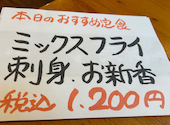 本日のおすすめ定食
ミックスフライ
刺身.お新香
税込 1.200円